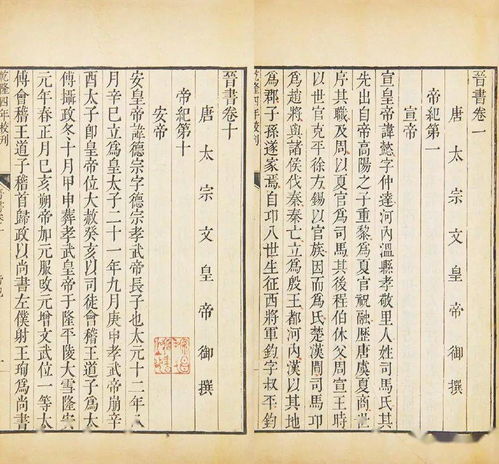 晉書卷一
唐太宗文皇帝御撰
帝紀第一
宣帝
宣皇帝諱懿字仲達河內溫縣孝敬里人姓司馬氏其
先出自帝高陽之子重黎爲夏官祝融歷唐虞夏商世
序其職及周以夏官爲司馬其後程伯休父周宣王時
以世官克平徐方錫以官族因而爲氏楚漢間司馬卬
爲趙將與諸侯伐秦秦亡立爲殷王都河內漢以其地
爲郡子孫遂家焉自卬八世生征西將軍鈞字叔平鈞
乾隆四年校刊
晉書卷十
唐太宗文皇帝御撰
帝紀第十
安帝
安皇帝諱德宗字德宗孝武帝長子也太元十二年八
月辛巳立爲皇太子二十一年九月庚申孝武帝崩辛
酉太子卽皇帝位大赦癸亥以司徒會稽王道子爲太
傅攝政冬十月甲申葬孝武皇帝于隆平陵大雪隆安
元年春正月己亥朔帝加元服改元增文武位一等太
傅會稽王道子稽首歸政以尚書左僕射王珣爲尚書
乾隆四年校刊